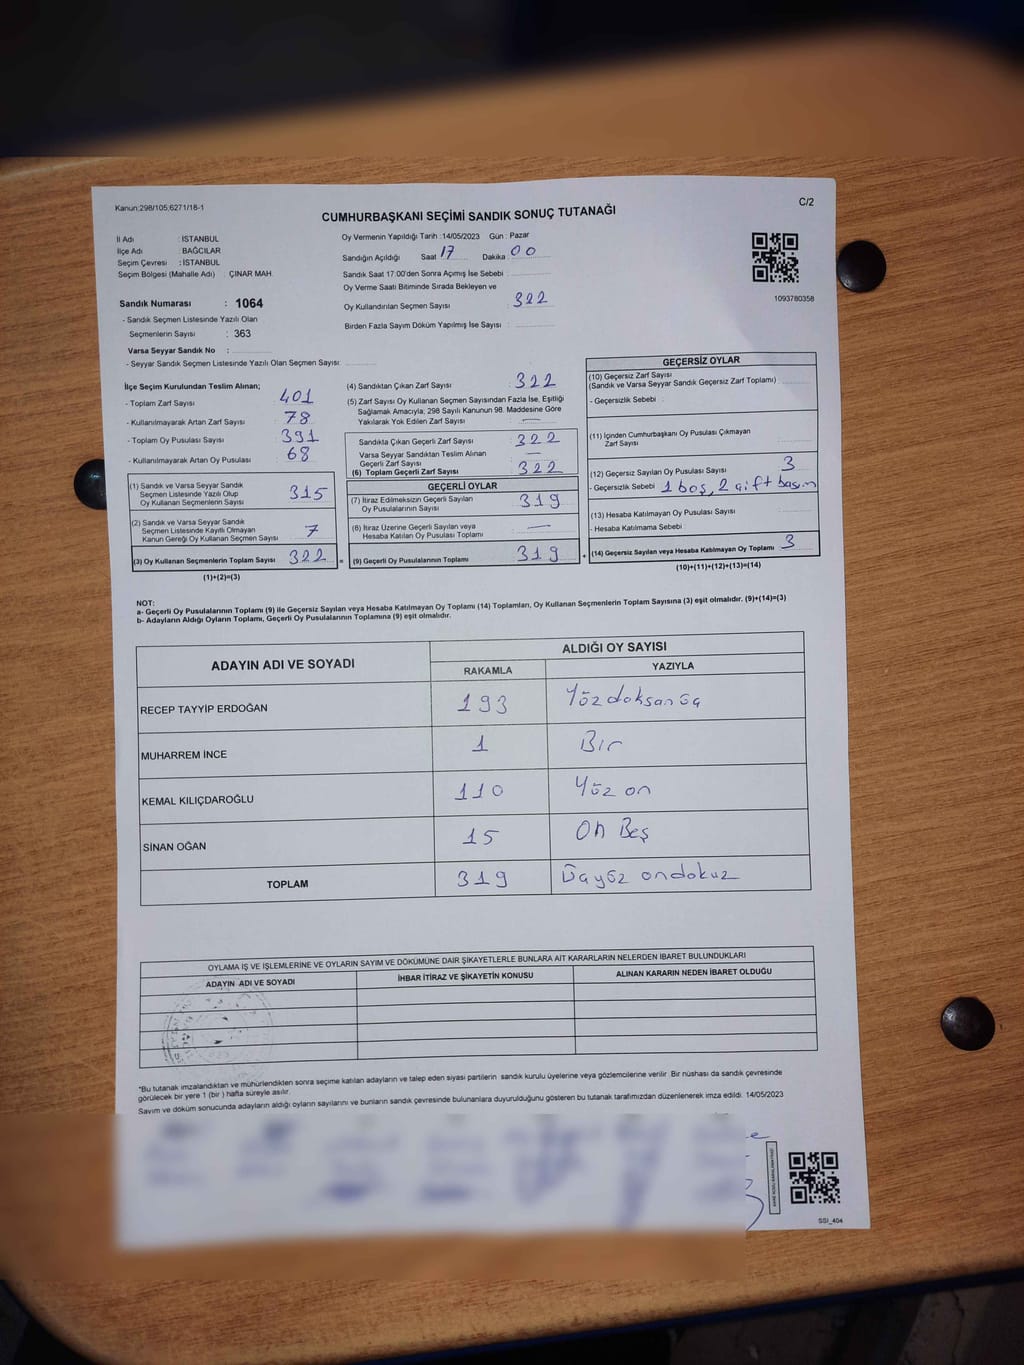 Kanun:298/105;6271/18-1
C/2
CUMHURBAŞKANI SEÇİMİ SANDIK SONUÇ TUTANAĞI
İl Adı : İSTANBUL
İlçe Adı : BAĞCILAR
Seçim Çevresi : İSTANBUL
Seçim Bölgesi (Mahalle Adı) : ÇINAR MAH.
Sandık Numarası : 1064
- Sandık Seçmen Listesinde Yazılı Olan
Seçmenlerin Sayısı : 363
Varsa Seyyar Sandık No :
- Seyyar Sandık Seçmen Listesinde Yazılı Olan Seçmen Sayısı:
Oy Vermenin Yapıldığı Tarih :14/05/2023 Gün : Pazar
Sandığın Açıldığı Saat 17 Dakika 00
Sandık Saat 17:00'den Sonra Açımış İse Sebebi :
Oy Verme Saati Bitiminde Sırada Bekleyen ve
Oy Kullandırılan Seçmen Sayısı : 322
Birden Fazla Sayım Döküm Yapılmış İse Sayısı :
1093780358
İlçe Seçim Kurulundan Teslim Alınan;
- Toplam Zarf Sayısı : 401
- Kullanılmayarak Artan Zarf Sayısı : 78
- Toplam Oy Pusulası Sayısı : 391
- Kullanılmayarak Artan Oy Pusulası : 68
(1) Sandık ve Varsa Seyyar Sandık
Seçmen Listesinde Yazılı Olup
Oy Kullanan Seçmenlerin Sayısı : 315
(2) Sandık ve Varsa Seyyar Sandık
Seçmen Listesinde Kayıtlı Olmayan
Kanun Gereği Oy Kullanan Seçmen Sayısı : 7
(3) Oy Kullanan Seçmenlerin Toplam Sayısı : 322
(1)+(2)=(3)
(4) Sandıktan Çıkan Zarf Sayısı : 322
(5) Zarf Sayısı Oy Kullanan Seçmen Sayısından Fazla İse, Eşitliği
Sağlamak Amacıyla; 298 Sayılı Kanunun 98. Maddesine Göre
Yakılarak Yok Edilen Zarf Sayısı : —
Sandıkta Çıkan Geçerli Zarf Sayısı : 322
Varsa Seyyar Sandıktan Teslim Alınan
Geçerli Zarf Sayısı : —
(6) Toplam Geçerli Zarf Sayısı : 322
GEÇERLİ OYLAR
(7) İtiraz Edilmeksizin Geçerli Sayılan
Oy Pusulalarının Sayısı : 319
(8) İtiraz Üzerine Geçerli Sayılan veya
Hesaba Katılan Oy Pusulası Toplamı : —
= (9) Geçerli Oy Pusulalarının Toplamı : 319
GEÇERSİZ OYLAR
(10) Geçersiz Zarf Sayısı
(Sandık ve Varsa Seyyar Sandık Geçersiz Zarf Toplamı) :
- Geçersizlik Sebebi :
(11) İçinden Cumhurbaşkanı Oy Pusulası Çıkmayan
Zarf Sayısı :
(12) Geçersiz Sayılan Oy Pusulası Sayısı : 3
- Geçersizlik Sebebi : 1 boş, 2 çift basım
(13) Hesaba Katılmayan Oy Pusulası Sayısı :
- Hesaba Katılmama Sebebi :
+ (14) Geçersiz Sayılan veya Hesaba Katılmayan Oy Toplamı : 3
(10)+(11)+(12)+(13)=(14)
NOT:
a- Geçerli Oy Pusulalarının Toplamı (9) ile Geçersiz Sayılan veya Hesaba Katılmayan Oy Toplamı (14) Toplamları, Oy Kullanan Seçmenlerin Toplam Sayısına (3) eşit olmalıdır. (9)+(14)=(3)
b- Adayların Aldığı Oyların Toplamı, Geçerli Oy Pusulalarının Toplamına (9) eşit olmalıdır.
ADAYIN ADI VE SOYADI
ALDIĞI OY SAYISI
RAKAMLA YAZIYLA
RECEP TAYYİP ERDOĞAN 193 Yüzdoksan üç
MUHARREM İNCE 1 Bir
KEMAL KILIÇDAROĞLU 110 Yüz on
SİNAN OĞAN 15 On Beş
TOPLAM 319 Üçyüz ondokuz
OYLAMA İŞ VE İŞLEMLERİNE VE OYLARIN SAYIM VE DÖKÜMÜNE DAİR ŞİKAYETLERLE BUNLARA AİT KARARLARIN NELERDEN İBARET BULUNDUKLARI
ADAYIN ADI VE SOYADI İHBAR İTİRAZ VE ŞİKAYETİN KONUSU ALINAN KARARIN NEDEN İBARET OLDUĞU
*Bu tutanak imzalandıktan ve mühürlendikten sonra seçime katılan adayların ve talep eden siyasi partilerin sandık kurulu üyelerine veya gözlemcilerine verilir. Bir nüshası da sandık çevresinde
görülecek bir yere 1 (bir) hafta süreyle asılır.
Sayım ve döküm sonucunda adayların aldığı oyların sayılarını ve bunların sandık çevresinde bulunanlara duyurulduğunu gösteren bu tutanak tarafımızdan düzenlenerek imza edildi. 14/05/2023
SSI_404